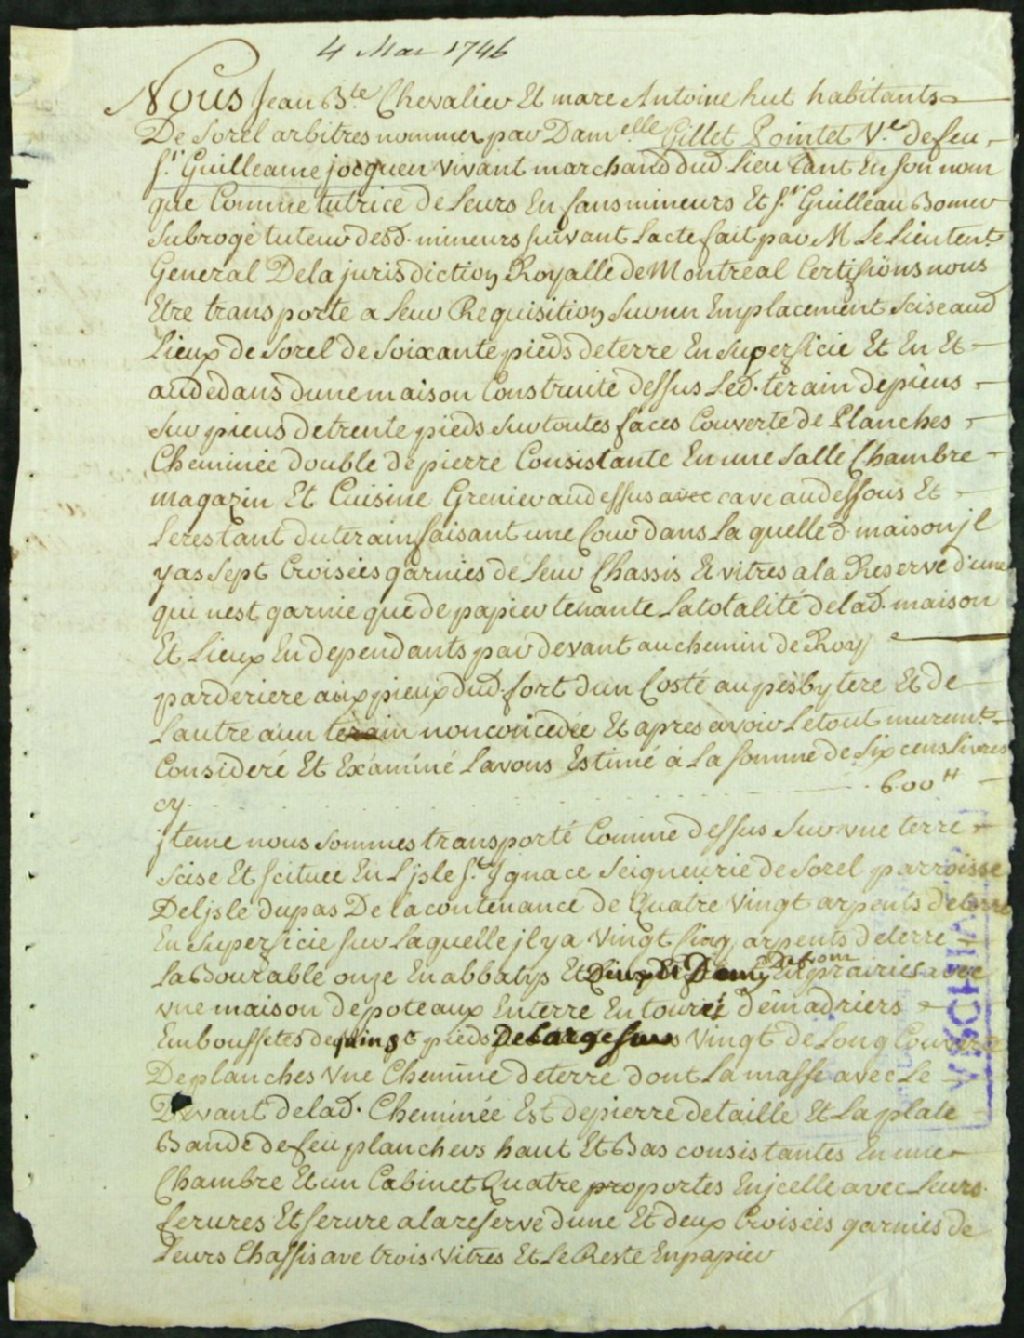 4 Mar 1746
Nous Jean Bte Chevalier Et marc Antoine hut habitants
De Sorel arbitres nommez par Damelle Gillet Pointet Ve de feu
Sr Guilleaume jocquen vivant marchand dud. Lieu tant En son nom
que Comme tutrice de Leurs Enfans mineurs Et Sr Guilleau Bomer
Subrogé tuteur desd. mineurs suivant Lacte fait par M Le Lieutent
General De la jurisdiction Royalle de Montreal Certifions nous
Etre transporté a Leur Requisition Sur un Emplacement Scise aud
Lieux de Sorel de Soixante pieds de terre En Superficie Et En Et
audedans dune maison Construite dessus Led. terain de pieus
Sur pieus de trente pieds Sur toutes faces Couverte de Planches
Cheminée double de pierre Consistante En une Salle Chambre
magazin Et Cuisine Grenier audessus avec cave audessous Et
Lerestant du terain faisant une Cour dans La quelle d. maison jl
yas Sept Croisées garnies de Leur Chassis Et vitres a la Reserve d'une
qui nest garnie que de papier tenante La totalité de lad. maison
Et Lieux En dependants par devant au chemin de Roy
par deriere aux pieux dud. fort dun Costé au presbytere Et de
Lautre a un terain non concedée Et apres avoir Le tout muremt
Consideré Et Examiné Lavons Estimé á La Somme de Six cens Livres
cy . . . . . . 600 ₶
jteme nous Sommes transporté Comme dessus Sur une terre
Scise Et Scituee En L'jsle St Jgnace Seigneurie de Sorel parroisse
De L'jsle dupas De la contenance de Quatre Vingt arpents de terre
En Superficie Sur Laquelle jl y a Vingt Sinq arpents de terre
Labourable onze En abbatys Et Deux Et Demy En prairies avec
une maison de poteaux En terre Entouréé de madriers
Embouffetés de vingt pieds De Large Sur Vingt de Long Couverte
De planches Une Cheminé de terre dont La masse avec Le
Devant de lad. Cheminée Est de pierre de taille Et La plate
Bande de feu planchers haut Et Bas consistantes En une
Chambre Et un Cabinet Quatre portes En jcelle avec Leurs
ferures Et Serure a la reserve dune Et deux Croisées garnies de
Leurs Chassis ave trois Vitres Et Le Reste En papier